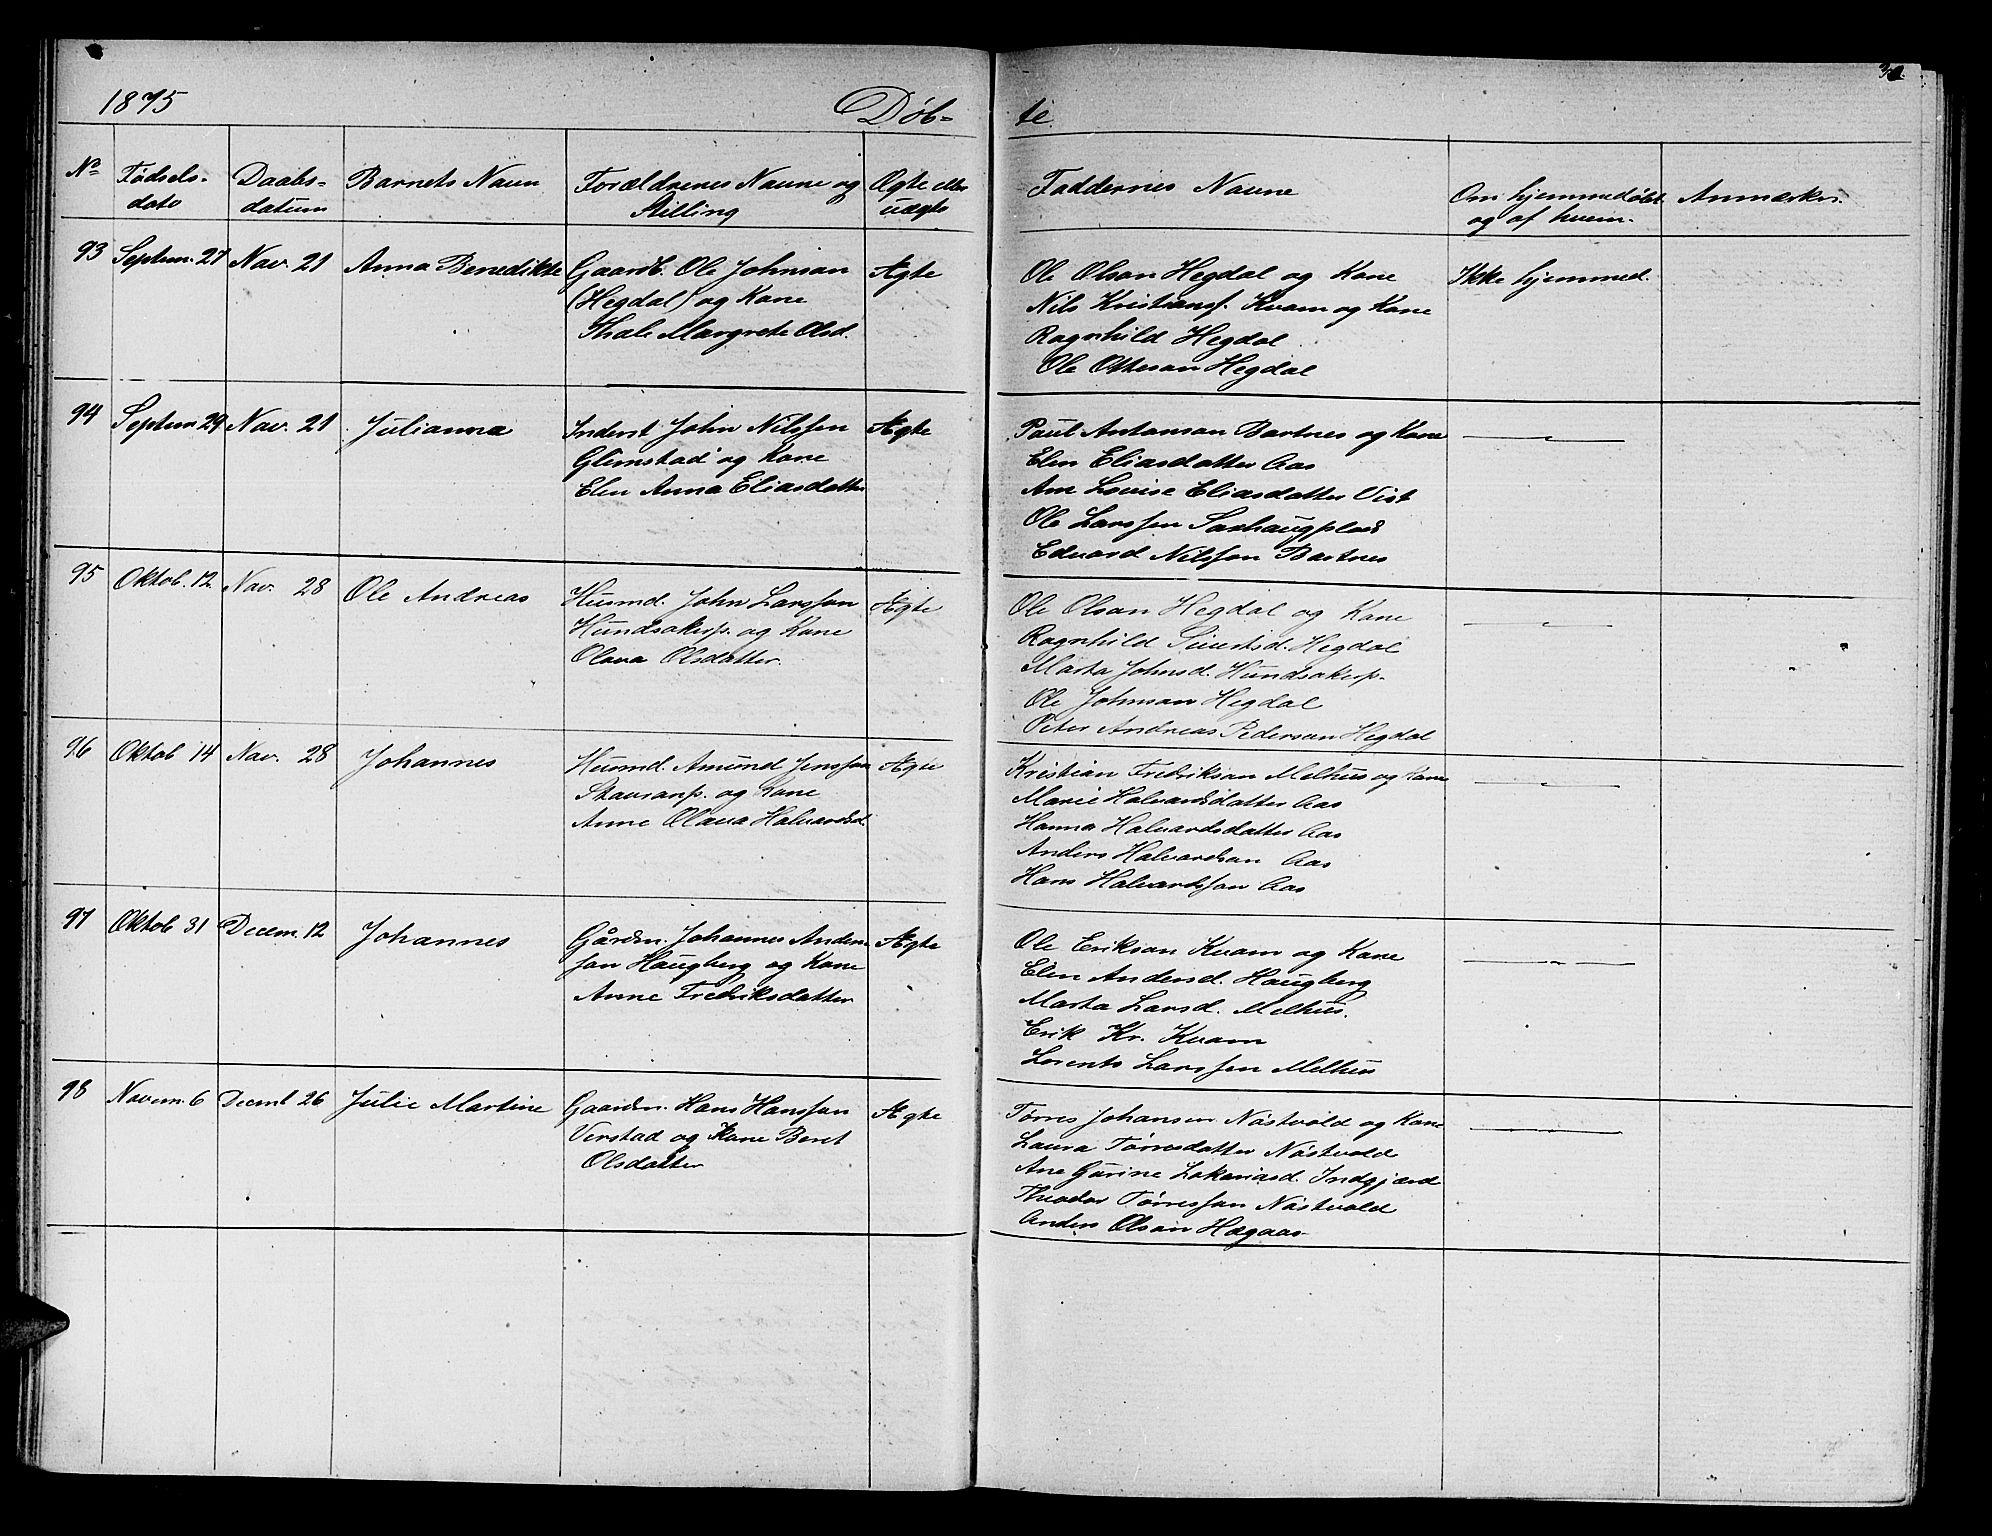 1875
Døb-
te
No
Fødsels-
dato
Daabs-
datum
Barnets Navn
Forældrenes Navne og
Stilling
Ægte eller
uægte
Faddernes Navne
Om hjemmedøbt
og af hvem.
Anmærkn.
93 Septem. 27 Nov. 21 Anna Benedikte Gaardb. Ole Johnson Ægte
(Hegdal) og Kone
Thale Margrete Olsd.
Ole Olson Hegdal og Kone Ikke hjemmed.
Nils Kristiansf. Kvam og Kone
Ragnhild Hegdal
Ole Otteson Hegdal
94 Septem 29 Nov. 21 Julianna Inderst John Nilssen Ægte
Glemstad og Kone
Elen Anna Eliasdatter
Paul Antonson Bartnes og Kone
Elen Eliasdatter Aas
Ane Lovise Eliasdatter Vist
Ole Larssen Saxhaugplad
Edvard Nilsson Bartnes
95 Oktob. 12 Nov. 28 Ole Andreas Husmd. John Larsson Ægte
Hundsakerp. og Kone
Olava Olsdatter.
Ole Olson Hegdal og Kone
Ragnhild Sivertsd. Hegdal
Marta Johnsd. Hundsakerp.
Ole Johnson Hegdal
Peter Andreas Pederson Hegdal
96 Oktob 14 Nov. 28 Johannes Husmd. Amund Jensson Ægte
og Kone
Anne Olava Halvardsd.
Kristian Fredrikson Melhus og Kone
Marie Halvardsdatter Aas
Hanna Halvardsdatter Aas
Anders Halvardson Aas
Hans Halvardsson Aas
97 Oktob 31 Decem. 12 Johannes Gårdm. Johannes Anders- Ægte
son Haugberg og Kone
Anne Fredriksdatter
Ole Erikson Kvam og Kone
Elen Andersd. Haugberg
Marta Larsd. Melhus.
Erik Kr. Kvam
Lorents Larssen Melhus
98 Novem. 6 Decemb 26 Julie Martine Gaardm. Hans Hansson Ægte
Verstad og Kone Beret
Olsdatter
Tørres Johansen Nøstvold og Kone
Laura Tørresdatter Nøstvold
Ane Gurine Zakariasd. Indgjærd
Theodor Tørresson Nøstvold
Anders Olson Hagaas